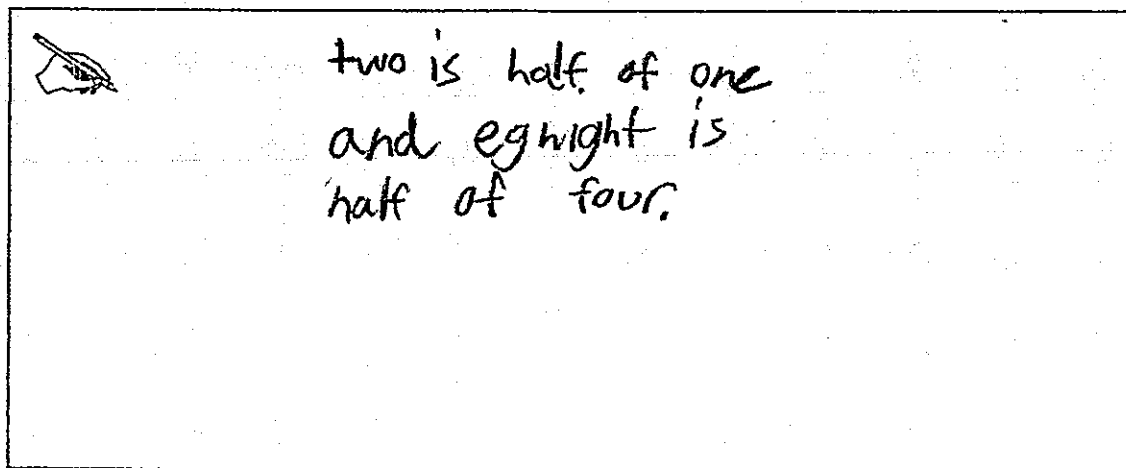 two is half of one
and egnight is
half of four.